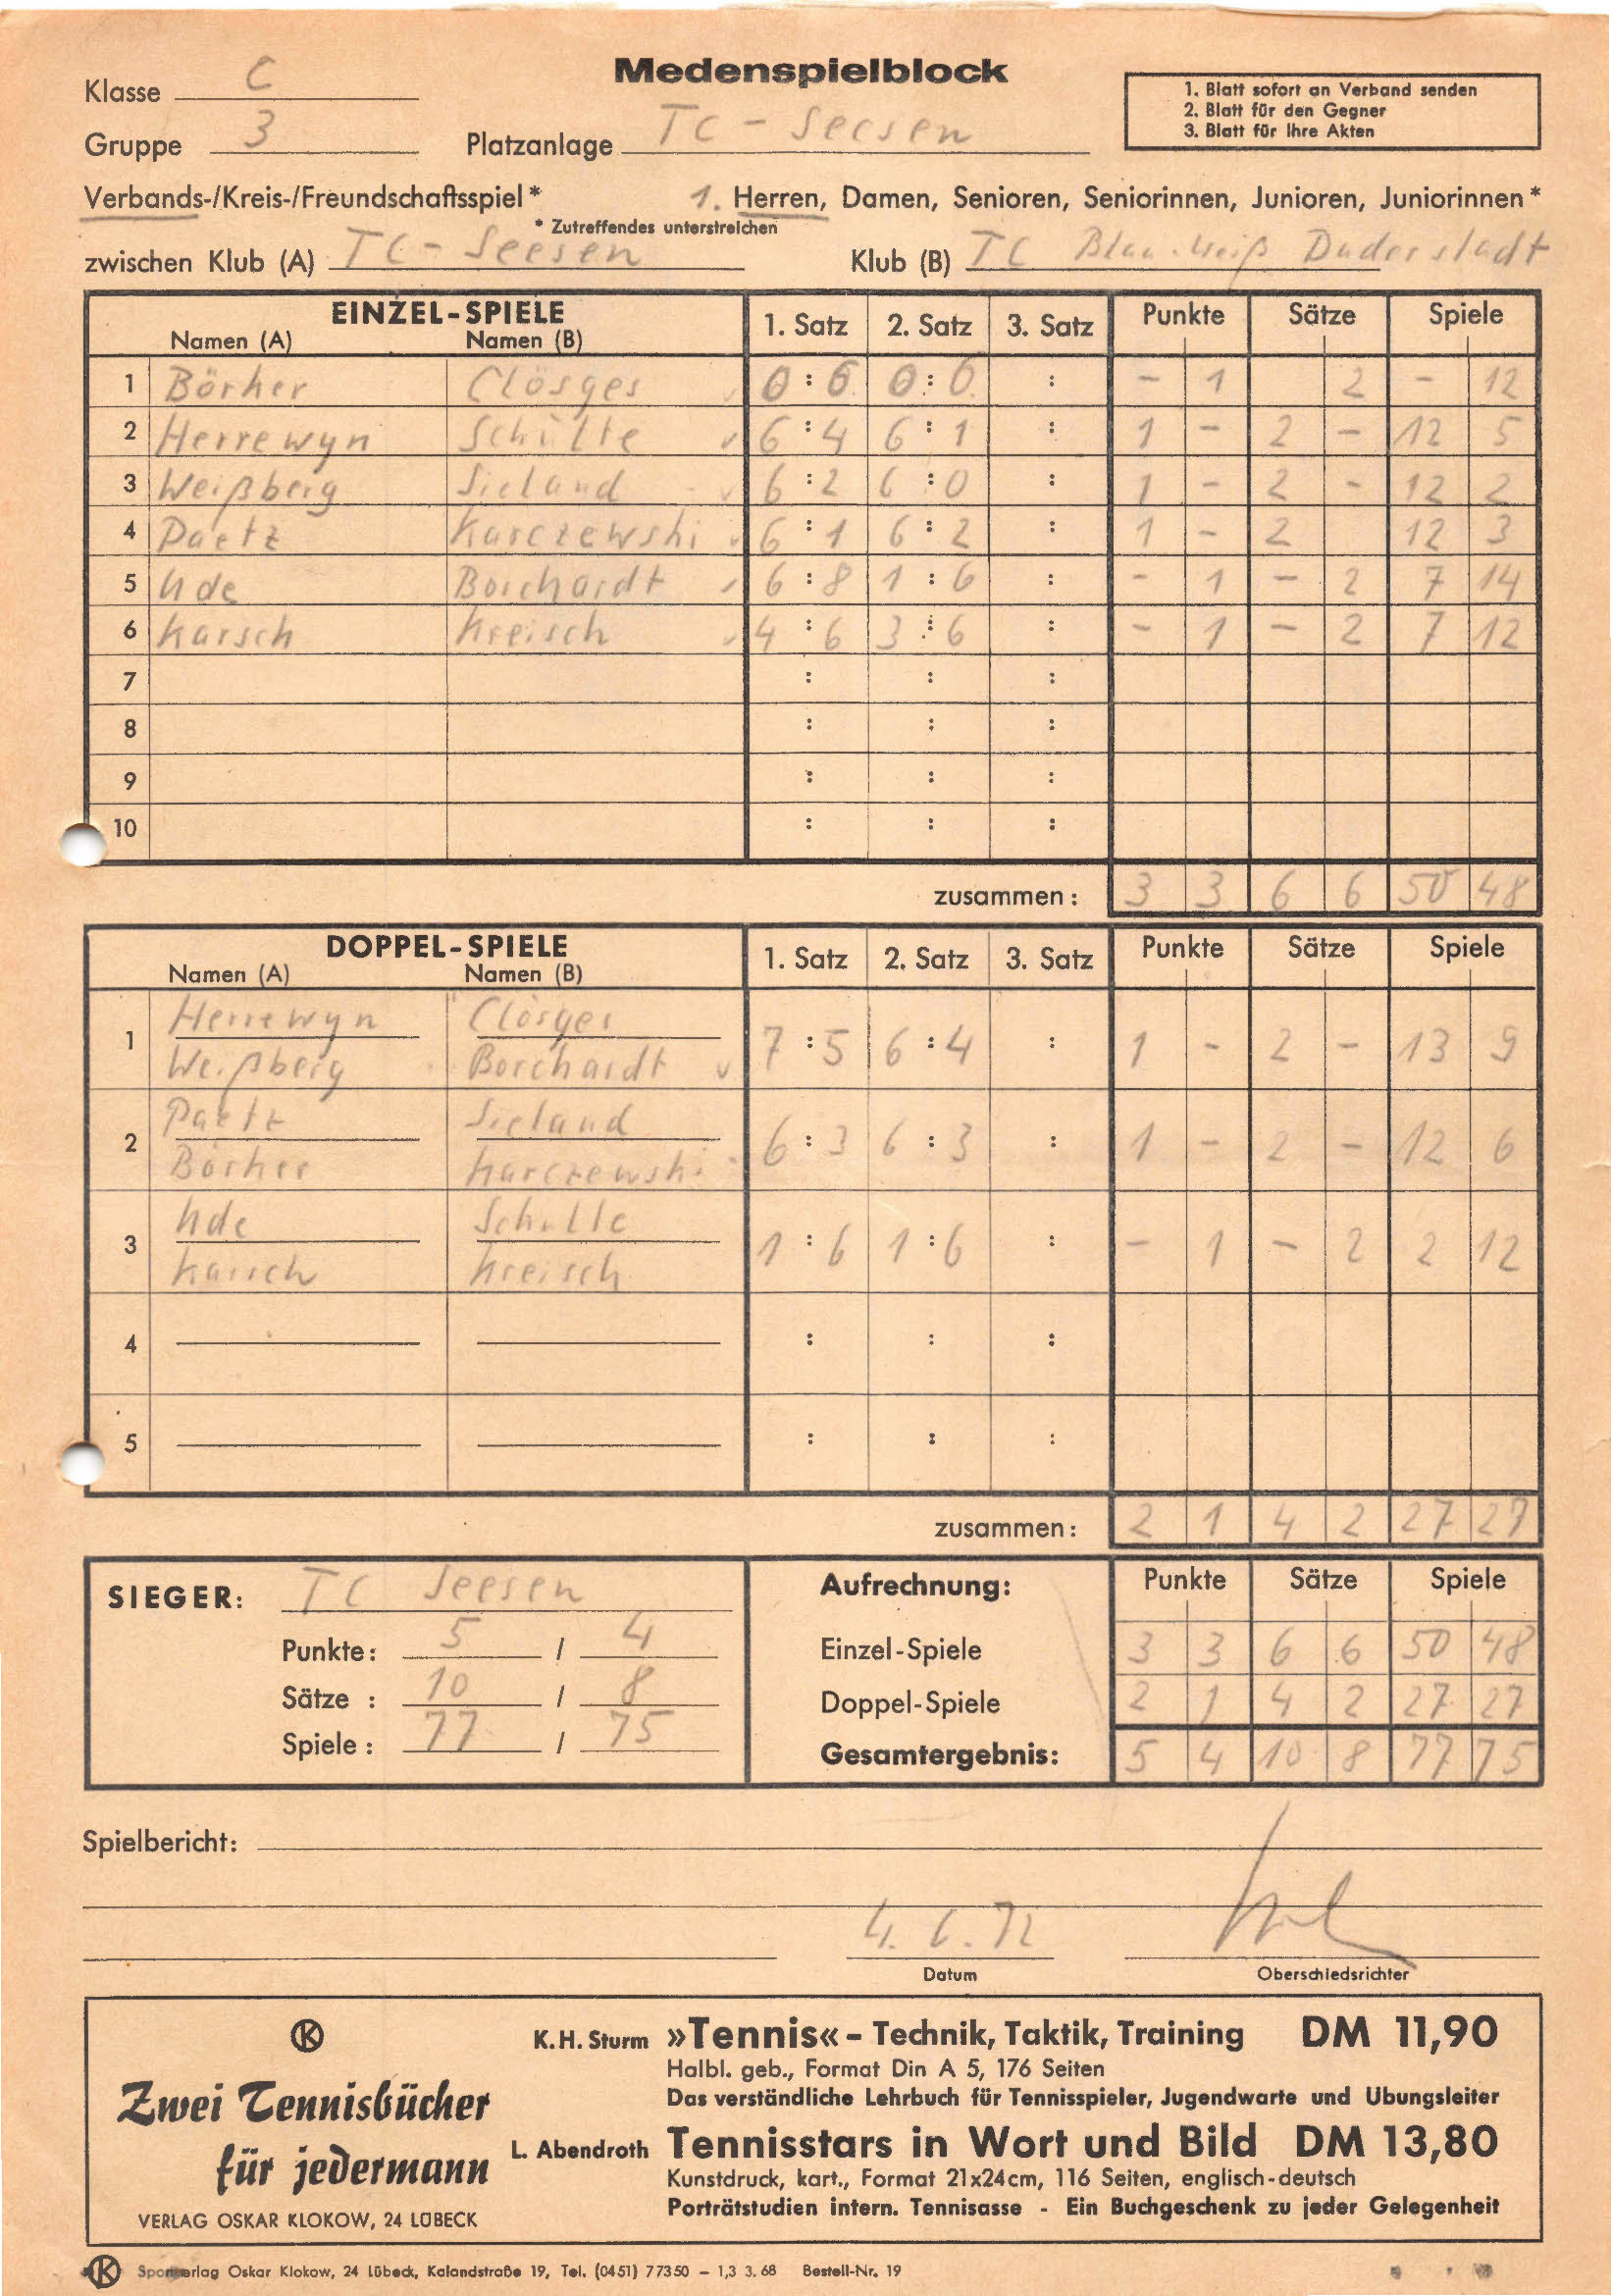 Medenspielblock
Klasse C
1. Blatt sofort an Verband senden
2. Blatt für den Gegner
3. Blatt für Ihre Akten
Gruppe 3 Platzanlage TC - Seesen
Verbands-/Kreis-/Freundschaftsspiel* 1. Herren, Damen, Senioren, Seniorinnen, Junioren, Juniorinnen*
* Zutreffendes unterstreichen
zwischen Klub (A) TC - Seesen Klub (B) TC Blau-Weiß Duderstadt
EINZEL-SPIELE 1. Satz 2. Satz 3. Satz Punkte Sätze Spiele
Namen (A) Namen (B)
1 Börher Clösges 0 : 6 0 : 6 : - 1 2 - 12
2 Herrewyn Schülte 6 : 4 6 : 1 : 1 - 2 - 12 5
3 Weißberg Sieland 6 : 2 6 : 0 : 1 - 2 - 12 2
4 Paetz Karczewski 6 : 1 6 : 2 : 1 - 2 12 3
5 Ude Borchardt 6 : 8 1 : 6 : - 1 - 2 7 14
6 Karsch Kreisch 4 : 6 3 : 6 : - 1 - 2 7 12
7 : : :
8 : : :
9 : : :
10 : : :
zusammen: 3 3 6 6 50 48
DOPPEL-SPIELE 1. Satz 2. Satz 3. Satz Punkte Sätze Spiele
Namen (A) Namen (B)
Herrewyn Clösges
1 7 : 5 6 : 4 : 1 - 2 - 13 9
Weißberg Borchardt
Paetz Sieland
2 6 : 3 6 : 3 : 1 - 2 - 12 6
Börher Karczewski
Ude Schulte
3 1 : 6 1 : 6 : - 1 - 2 2 12
Karsch Kreisch
4 : : :
5 : : :
zusammen: 2 1 4 2 27 27
SIEGER: TC Seesen Aufrechnung: Punkte Sätze Spiele
Punkte: 5 / 4 Einzel-Spiele 3 3 6 6 50 48
Sätze : 10 / 8 Doppel-Spiele 2 1 4 2 27 27
Spiele : 77 / 75 Gesamtergebnis: 5 4 10 8 77 75
Spielbericht:
4. 6. 72
Datum Oberschiedsrichter
K
K. H. Sturm »Tennis« - Technik, Taktik, Training DM 11,90
Halbl. geb., Format Din A 5, 176 Seiten
Zwei Tennisbücher
Das verständliche Lehrbuch für Tennisspieler, Jugendwarte und Übungsleiter
für jedermann
L. Abendroth Tennisstars in Wort und Bild DM 13,80
Kunstdruck, kart., Format 21x24cm, 116 Seiten, englisch-deutsch
VERLAG OSKAR KLOKOW, 24 LÜBECK
Porträtstudien intern. Tennisasse - Ein Buchgeschenk zu jeder Gelegenheit
K Oskar Klokow, 24 Lübeck, Kalandstraße 19, Tel. (0451) 77350 – 1,3 3. 68 Bestell-Nr. 19